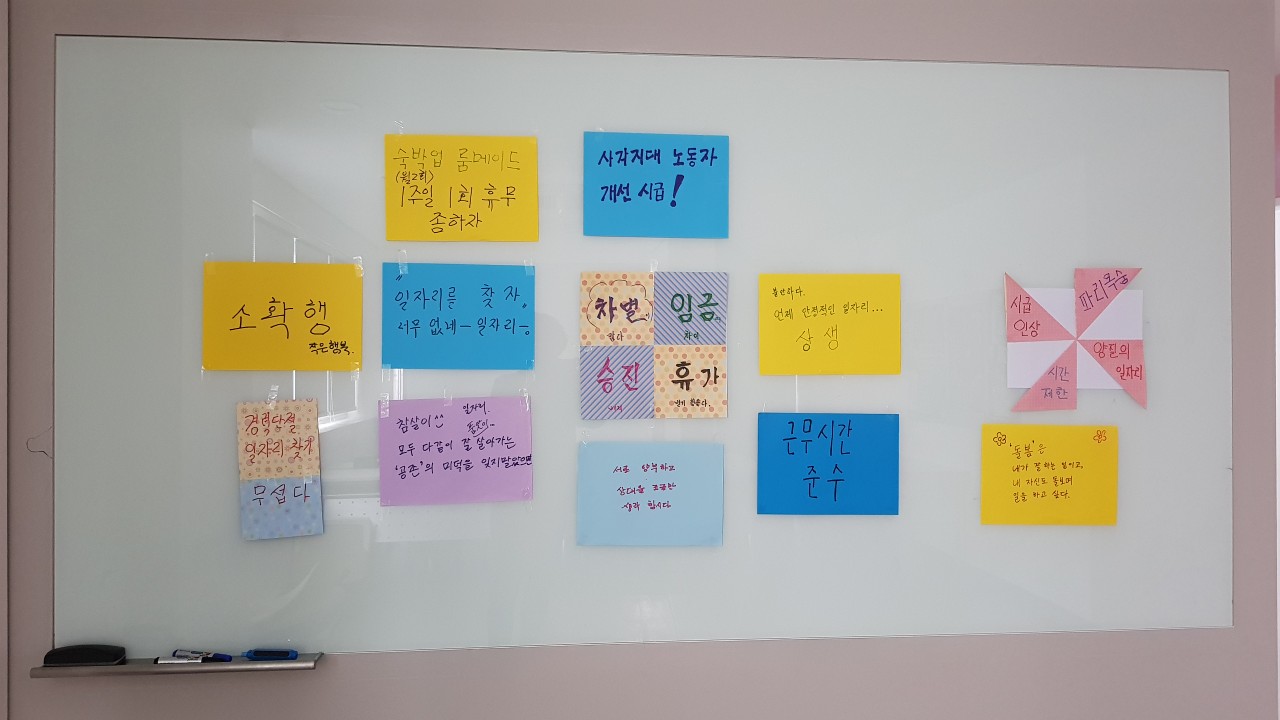 숙박업 룸메이드
(월2회)
1주일 1회 휴무
종하자
사각지대 노동자
개선 시급!
소확행
작은행복.
"일자리를 찾자"
너무 없네 - 일자리 -
차별
임금
차이
승진
휴가
불안하다.
언제 안정적인 일자리...
상생
시급
인상
파리목숨
양질의
일자리
시간
제한
경력단절
일자리 찾기
무섭다
일자리.
모두 다같이 잘 살아가는
'공존'의 미덕을 잊지말았으면
서로 양보하고
상대을 조금만
생각 합시다
근무시간
준수
'돌봄'은
내가 잘하는 일이고,
내 자신도 돌보며
일을 하고 싶다.